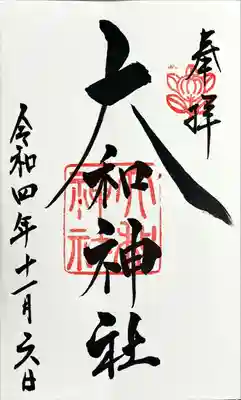 奉拝
大和神社
令和四年十一月六日